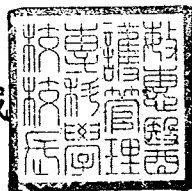 敏惠醫
護管理
專科學
校校長